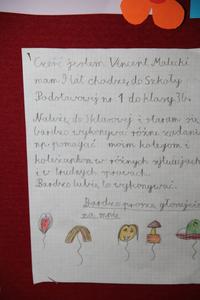 Cześć jestem Vincent Małecki
mam 9 lat chodzę do Szkoły
Podstawowej nr 1 do klasy 3b.
Należę do 3 klasowej i staram się
bardzo wykonywać różne zadania
np. pomagać moim kolegom i
koleżankom w różnych sytuacjach
i w trudnych sprawach.
Bardzo lubię to wykonywać.
Bardzo proszę głosujcie
na mnie